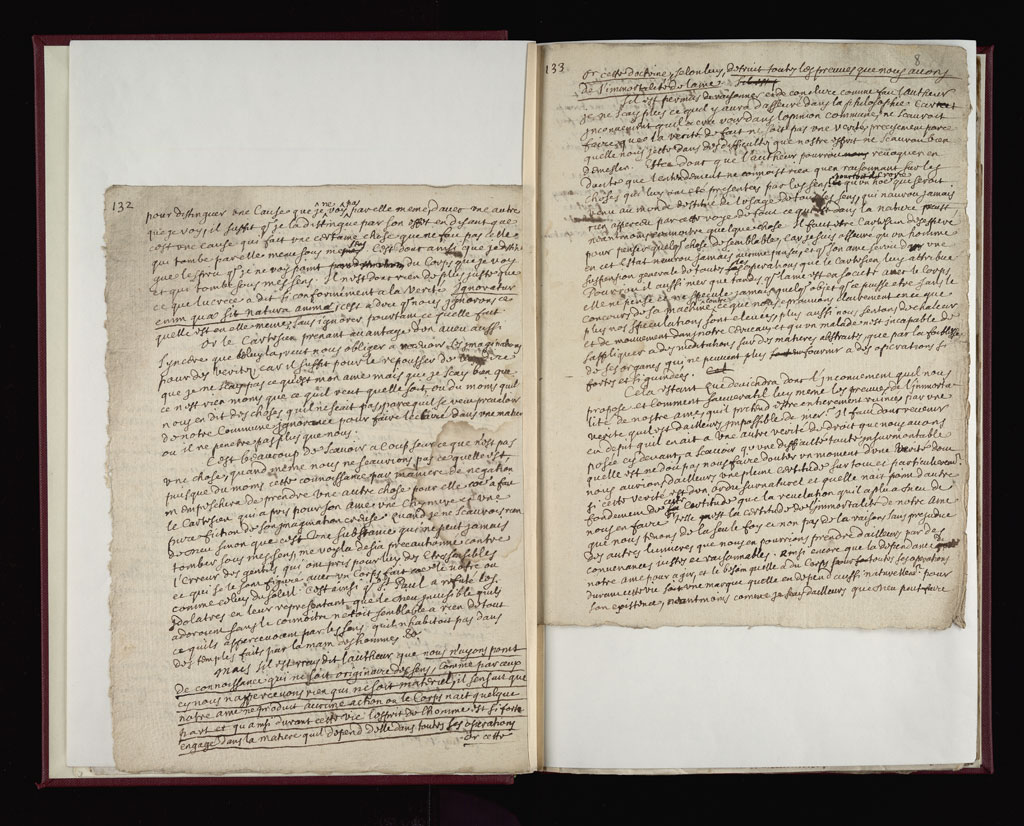 132
pour distinguer une Cause que je ne voy pas par elle meme, d'avec une autre
que je voy, il suffit q̃ je la distingue par son effet en disant que
c'est une cause qui fait une certaine chose que ne fait pas celle
qui tombe par elle meme sous mes sens. C'est donc ainsi que je distin
gue l'esprit q̃ je ne voy point du Corps que je voy
et qui tombe sous mes sens. Il n'est donc rien de plus juste que
ce que Lucrece a dit si conformement a la verité Ignoratur
enim quæ sit natura animai c'est a dire q̃ nous ignorons ce
quelle est en elle meme, sans ignorer pourtant ce quelle fait
Or le Cartesien prenant avantage d'un aveu aussi
syncere que celuy la, veut nous obliger a recevoir ses imaginations
pour des veritez, car il suffit pour le repousser de
que je ne scay pas ce qu'est mon ame mais que je scay bien que
ce n'est rien moins que ce qu'il veut quelle soit, ou du moins quil
nous en dit des choses quil ne scait pas, parce quil se veut prevaloir
de notre Commune ignorance pour faire lecture dans une matiere
ou il ne penetre pas plus que nous.
C'est beaucoup de scavoir a coup seur ce que n'est pas
une chose, quand meme nous ne scaurions pas ce quelle est,
puisque du moins cette connoissance par maniere de negation
m'empeschera de prendre une autre chose pour elle, co'e a fait
le Cartesien qui a pris pour son ame une Chymere et une
pure fiction de son imagination creuse. quand je ne scaurois rien
de dieu sinon que c'est une substance qui ne peut jamais
tomber sous mes sens, me voyla desia precautionné contre
l'erreur des gentils qui ont pris pour luy des Etres sensibles
et qui se le sont figuré avec un Corps fait co'e le notre ou
comme celuy du soleil. C'est ainsi q̃ St Paul a refuté les
Idolatres en leur representant que le dieu invisible quils
adoroient sans le connoitre netoit semblable a rien de tout
ce quils appercevoient par les sens, quil n'habitoit pas dans
des temples faits par la main des hommes &c
Mais s'il est vray dit l'autheur que nous n'ayons point
de connoissance qui ne soit originaire des sens, comme par eux
nous n'appercevons rien qui ne soit materiel, il s'ensuit que
notre ame ne produit aucune action ou le Corps n'ait quelque
part et qu'ainsi durant cette vie l'esprit de l'homme est si fort
engagé dans la matiere quil depend d'elle dans toutes ses operations
Or cette
133
8
Or cette doctrine, selon luy, detruit toutes les preuves que nous avons
de l'immortalité de l'ame
S'il est permis de raisonner et de conclure comme fait l'autheur
je ne scay plus ce quil y aura d'asseuré dans la philosophie Cartes
Inconvenient quil a cru voir dans l'opinion commune, ne scauroit
faire que la verité de fait ne soit pas une verité, precisement parce
quelle nous jette dans des difficultés que nostre esprit ne scauroit bien
demesler. Est ce donc que l'autheur pourroit revoquer en
doute que l'entendement ne connoist rien qu'en raisonnant sur les
choses qui luy ont eté presentées par les sens
venu au monde destitué de l'usage de tous ses sens, qui n'auroit jamais
rien apperceu par cette voye de tout ce qui est dans la nature, peust
neantmoins connoitre quelque chose. Il faut etre Cartesien de
pour penser quelq̃ chose de semblable, car je suis asseuré qu'un homme
en cet Etat n'auroit jamais aucune pensée et q̃ son ame seroit dans une
suspention generale de toutes les operations que le Cartesien luy attribue
Pourroit il aussi nier que tandis q̃ l'ame est en société avec le corps,
elle ne pense et ne specule jamais quelq̃ objet q̃ ce puisse etre sans le
concours de sa machine, ce que nous eprouvons clairement en ce que
plus nos speculations sont elevées plus aussi nous sentons de chaleur
et de mouvement dans notre cerveau et qu'un malade est incapable de
s'appliquer a des meditations sur des matieres abstraites que par la foiblesse
de ses organes qui ne peuvent plus fournir a des operations si
fortes et si guindées.
Cela estant que deviendra donc l'inconvenient quil nous
propose et comment sauvera t'il luy meme les preuves de l'immorta-
lité de notre ame, quil pretend estre entierement ruinées par une
verité quil est d'ailleurs impossible de nier? Il faut donc revenir
en depit quil en ait a une autre verité de droit que nous avons
posée cy devant, a scavoir qu'une difficulté toute insurmontable
quelle est ne doit pas nous faire douter un moment d'une verité dont
nous aurions d'ailleurs une pleine certitude sur tout et particulierem.t
si cette verité est d'un ordre surnaturel et quelle n'ait point d'autre
fondement de cette certitude que la revelation quil a plu a dieu de
nous en faire. Telle est la certitude de l'immortalité de notre ame
que nous tenons de la seule foy et non pas de la raison, sans prejudice
des autres lumieres que nous en pourrions prendre d'ailleurs par des
convenances justes et raisonnables. Ainsi encore que la dependance
notre ame pour agir, et le besoin quelle a du Corps pour toutes ses operations
durant cette vie soit une marque quelle en depend aussi naturellem.t pour
son existence, neantmoins comme je scay d'ailleurs que dieu peut faire